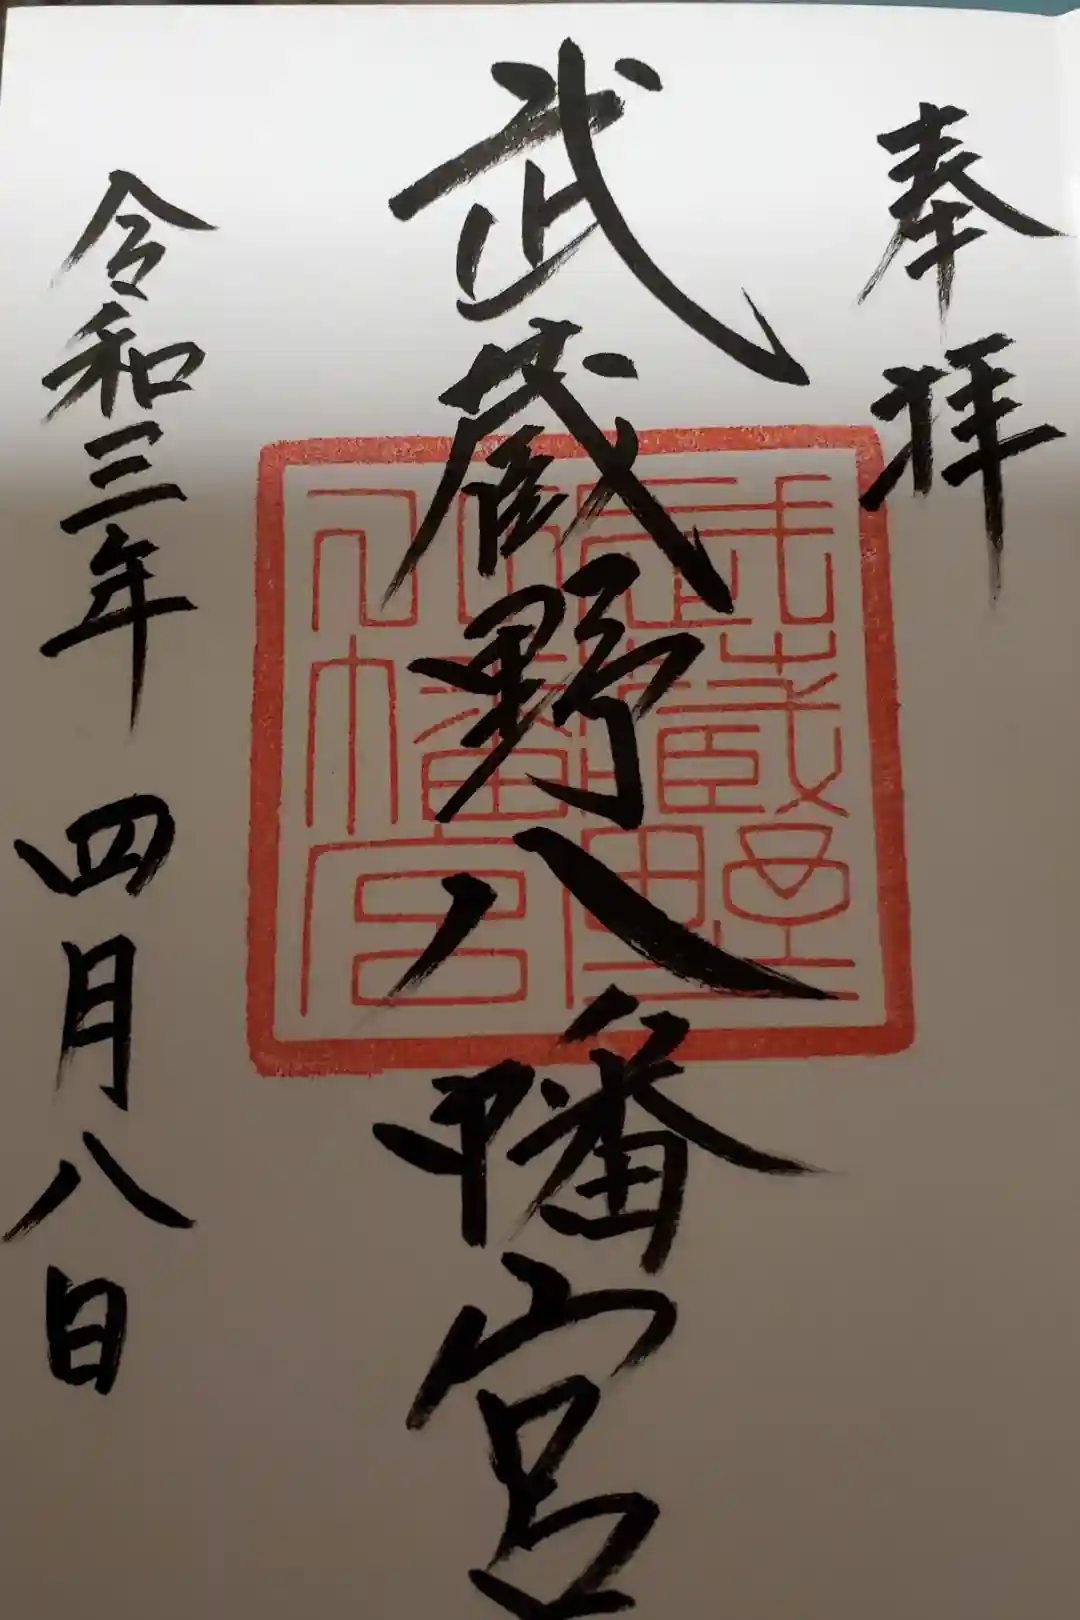 奉拝
武蔵野八幡宮
武蔵野八幡宮
令和三年四月八日